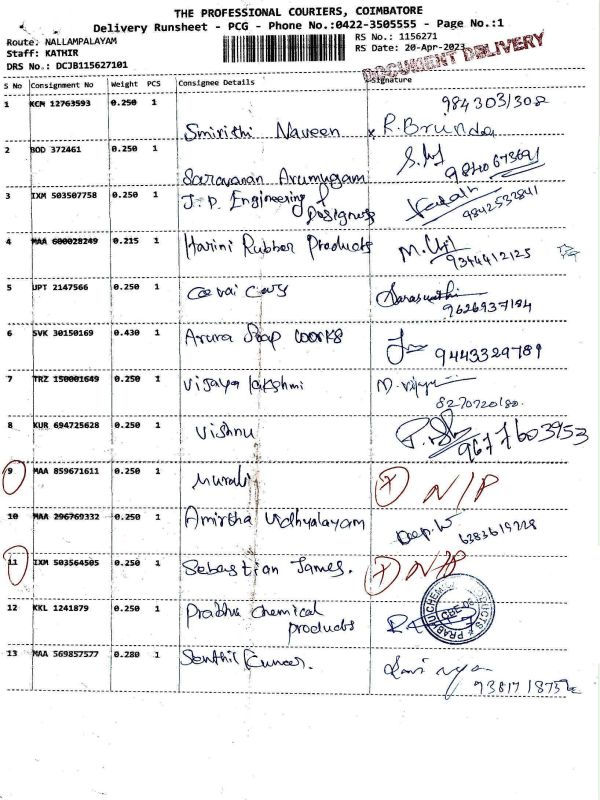 THE PROFESSIONAL COURIERS, COIMBATORE
Delivery Runsheet - PCG - Phone No.:0422-3505555 - Page No.:1
Route: NALLAMPALAYAM
Staff: KATHIR
DRS No.: DCJB115627101
RS No.: 1156271
RS Date: 20-Apr-2023
DOCUMENT DELIVERY
S No Consignment No Weight PCS Consignee Details Signature
1 KCM 12763593 0.250 1 Smirithi Naveen x R.Brunda 9843031308
2 BOD 372461 0.250 1 Saravanan Arumugam
3 IXM 503507758 0.250 1 J.P. Engineering & Designers 9842532841
4 MAA 600028249 0.215 1 Harini Rubber Products 9344412125
5 UPT 2147566 0.250 1 Covai Cars Saraswathi 9626937184
6 SVK 30150169 0.430 1 Aruna Soap Works 9443329789
7 TRZ 150001649 0.250 1 Vijaya lakshmi 8270720180
8 KUR 694725628 0.250 1 Vishnu 9677603953
9 MAA 859671611 0.250 1 Murali x N/P
10 MAA 296769332 0.250 1 Amirtha Vidhyalayam 6283619228
11 IXM 503564505 0.250 1 Sebastian James. x N/P
12 KKL 1241879 0.250 1 Prabhu Chemical products
PRABHU CHEMICAL PRODUCTS
13 MAA 569857577 0.280 1 Senthil Kumar.